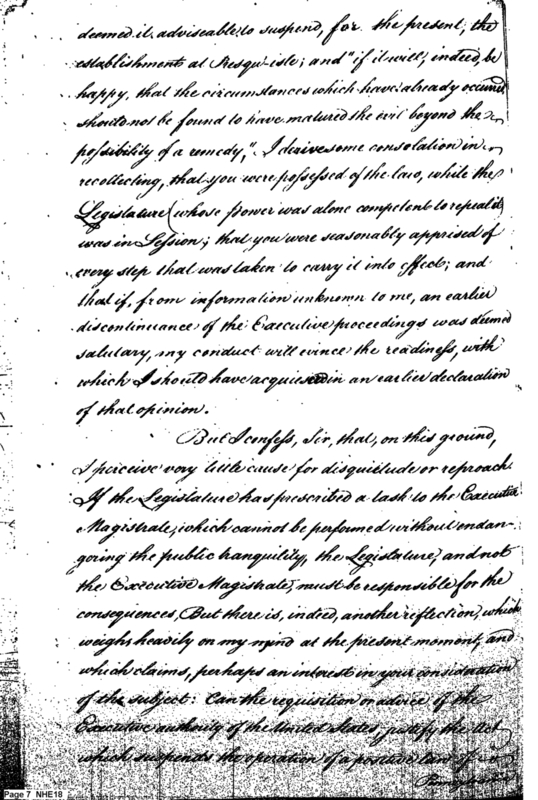 deemed it adviseable to suspend, for the present, the
establishment at Presqu-isle; and "if it will, indeed, be
happy, that the circumstances which have already occurred
should not be found to have matured the evil beyond the
possibility of a remedy," I derive some consolation in
recollecting, that you were possessed of the law, while the
Legislature (whose power was alone competent to repeal it)
was in Session; that you were seasonably apprised of
every step that was taken to carry it into effect; and
that if, from information unknown to me, an earlier
discontinuance of the Executive proceedings was deemed
salutary, my conduct will evince the readiness, with
which I should have acquiesced in an earlier declaration
of that opinion.
But I confess, Sir, that, on this ground,
I perceive very little cause for disquietude or reproach.
If the Legislature has prescribed a task to the Executive
Magistrate, which cannot be performed without endan-
gering the public tranquility, the Legislature, and not
the Executive Magistrate, must be responsible for the
consequences. But there is, indeed, another reflection, which
weighs heavily on my mind at the present moment, and
which claims, perhaps an interest in your consideration
of the subject: Can the requisition or advice of the
Executive authority of the United States, justify the Act
which suspends the operation of a positive law of
Pennsylvania
Page 7 NHE18